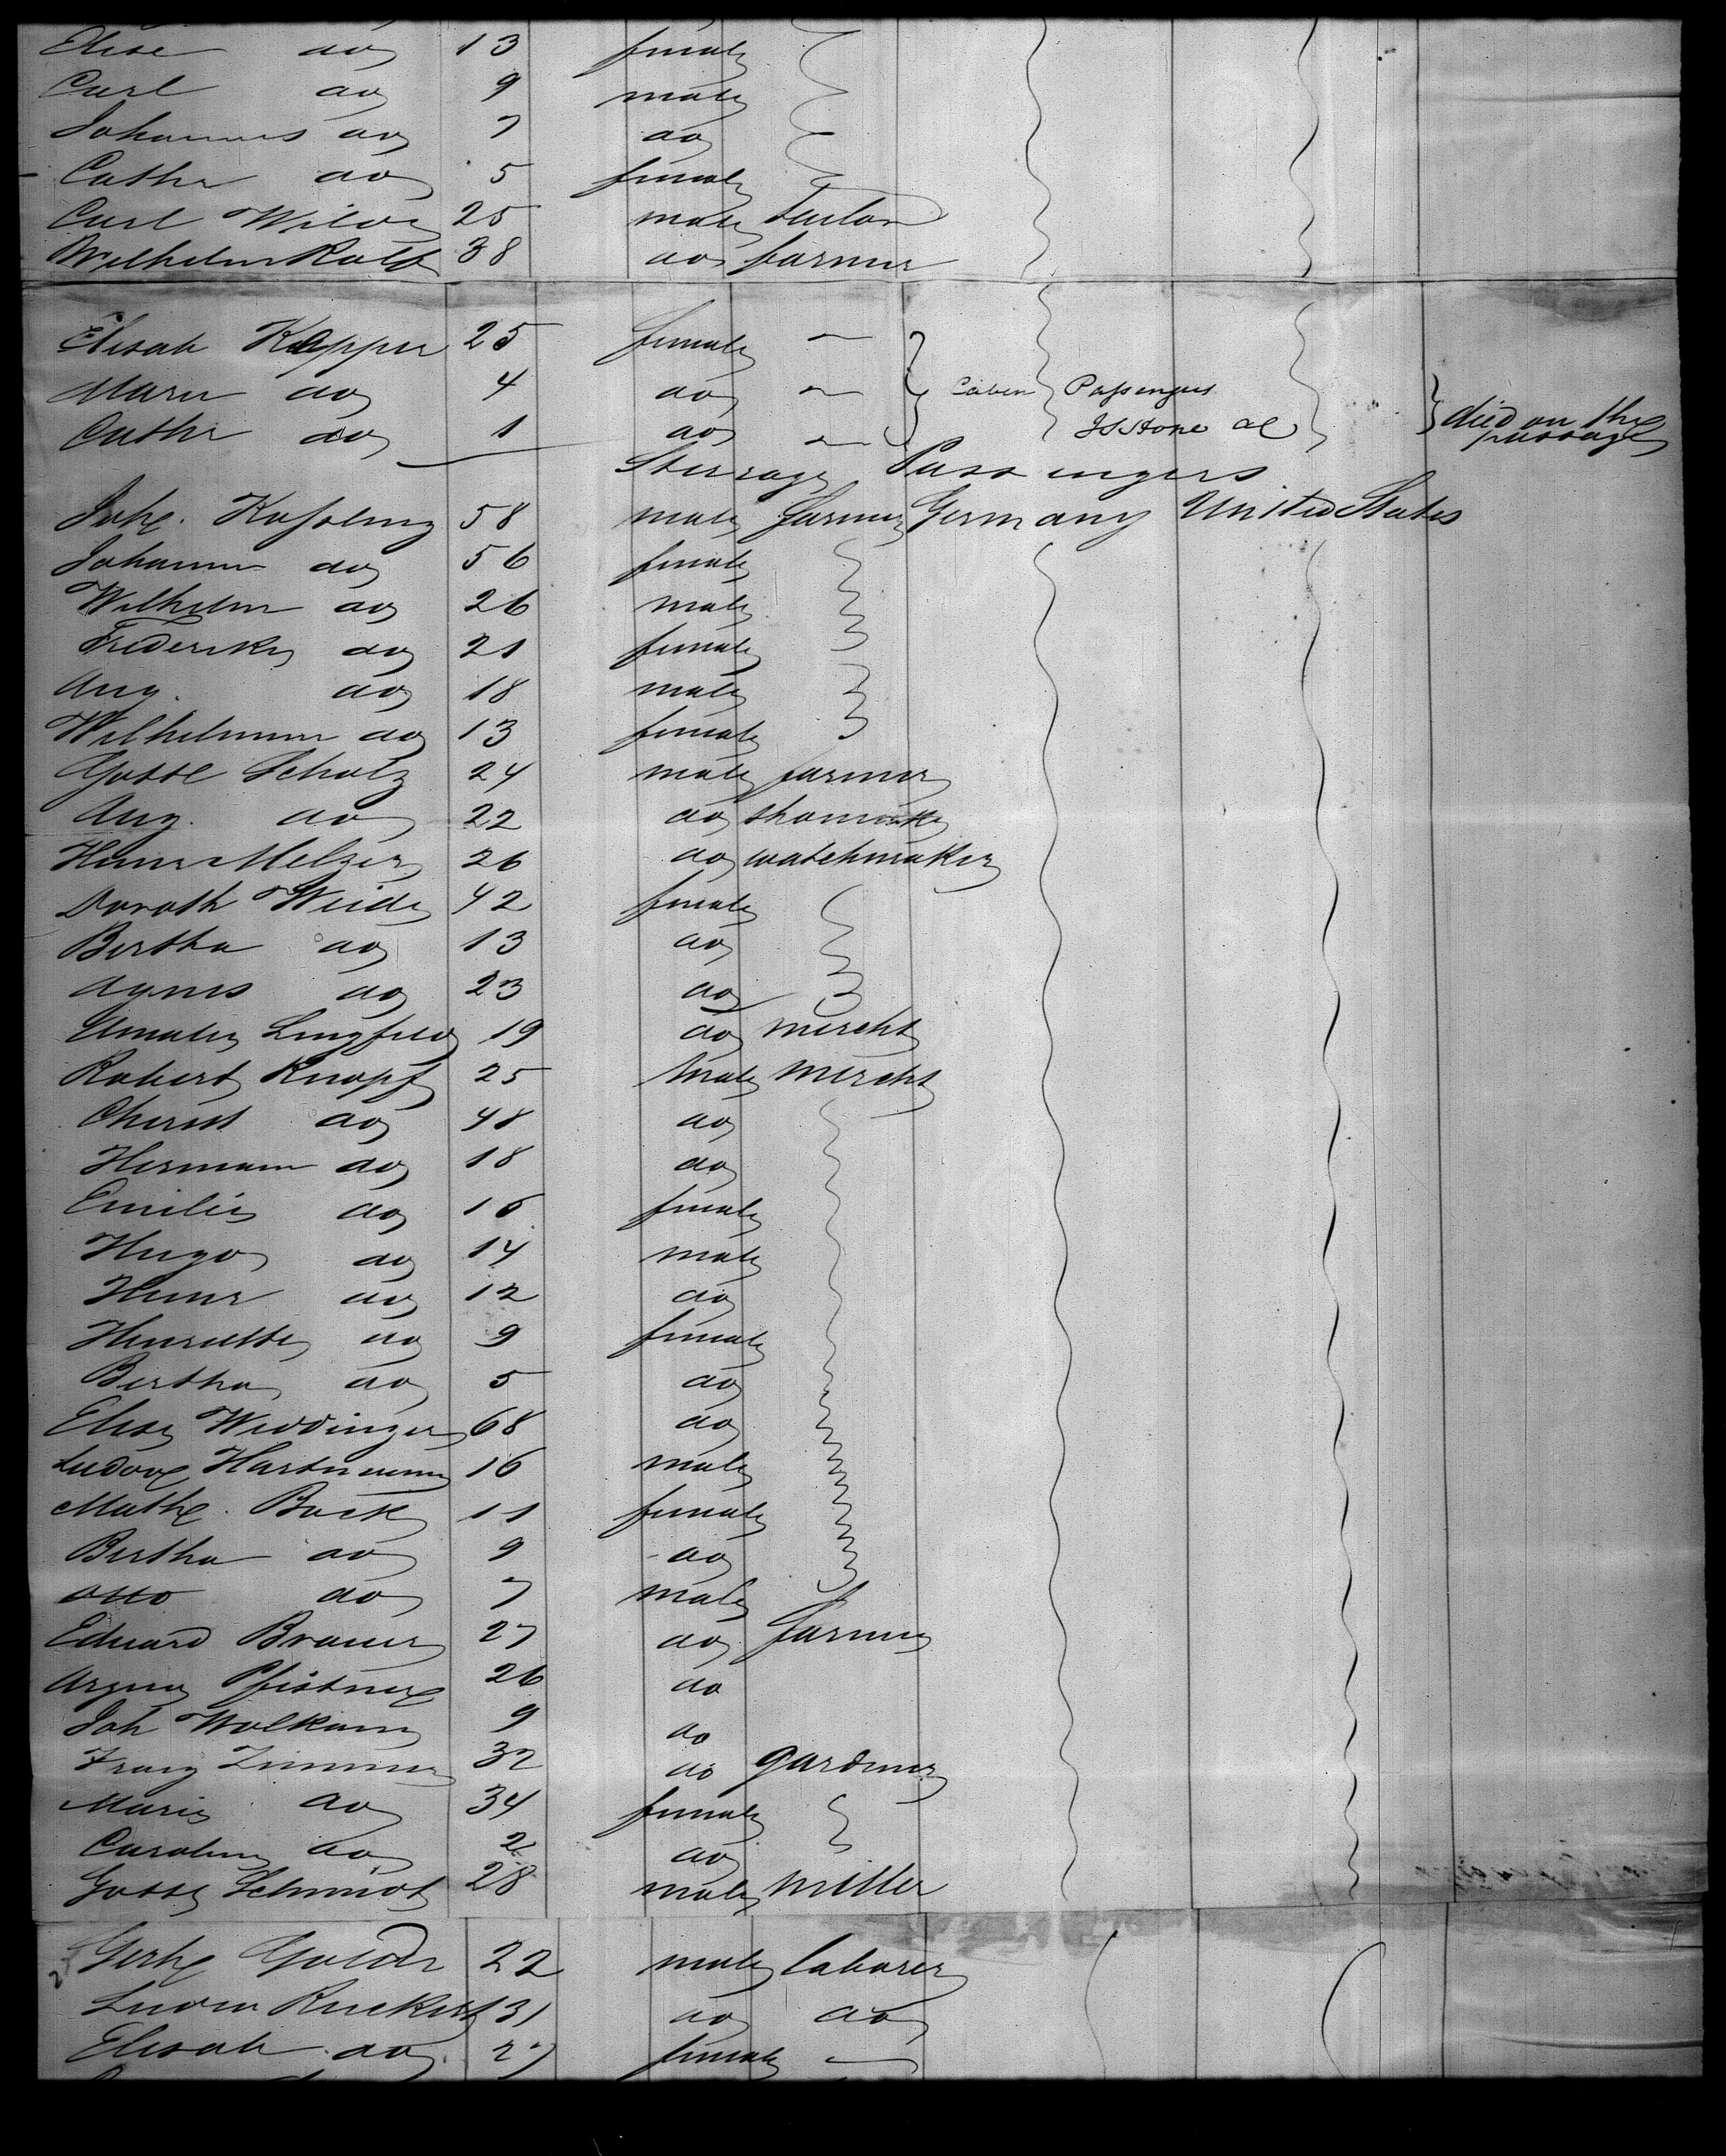 Elise do 13 female
Carl do 9 male
Johannes do 7 do
Cathr do 5 female
Carl Wilde 25 male Tailor
Wilhelm Rolf 38 do farmer
Elisab Kapper 25 female —
Marie do 4 do — Cabin Passengers
Cathr do 1 do — died on the passage
Steerage Passengers
Joh. 58 male farmer Germany United States
Johanna do 56 female
Wilhelm do 26 male
Frederike do 21 female
Aug. do 18 male
Wilhelmine do 13 female
Gottl Scholz 24 male farmer
Aug. do 22 do shomaker
Heinr Melzer 26 do watchmaker
Doroth Weide 42 female
Bertha do 13 do
Agnes do 23 do
Amalie Lingfeld 19 do mercht
Robert Knopf 25 male mercht
Christ do 48 do
Hermann do 18 do
Emilie do 16 female
Hugo do 14 male
Heinr do 12 do
Henriette do 9 female
Bertha do 5 do
Elise Weddinger 68 do
Ludov Hartmann 16 male
Math. Bock 11 female
Bertha do 9 do
Otto do 7 male
Eduard Brauer 27 do farmer
26 do
Joh Wolkam 9 do
Franz Zimmer 32 do gardner
Marie do 34 female
Caroline do 2 do
Gottl Schmidt 28 male miller
22 male laborer
Ruckert 31 do do
Elisab do 27 female —